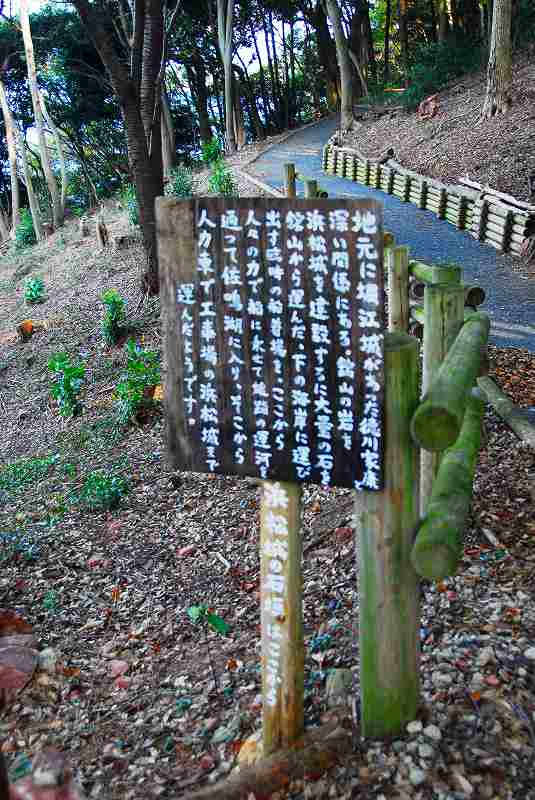 地元に堀江城があった徳川家康と
深い関係にある、舘山の岩を
浜松城を建設するに大量の石を
舘山から運んだ、下の海岸に運び
出す臨時の船着場を、ここから
人々の力で船に乗せて雄踏の運河を
通って佐鳴湖に入り、そこから
人力車で工事場の浜松城まで
運んだようです。
浜松城の石垣はここから